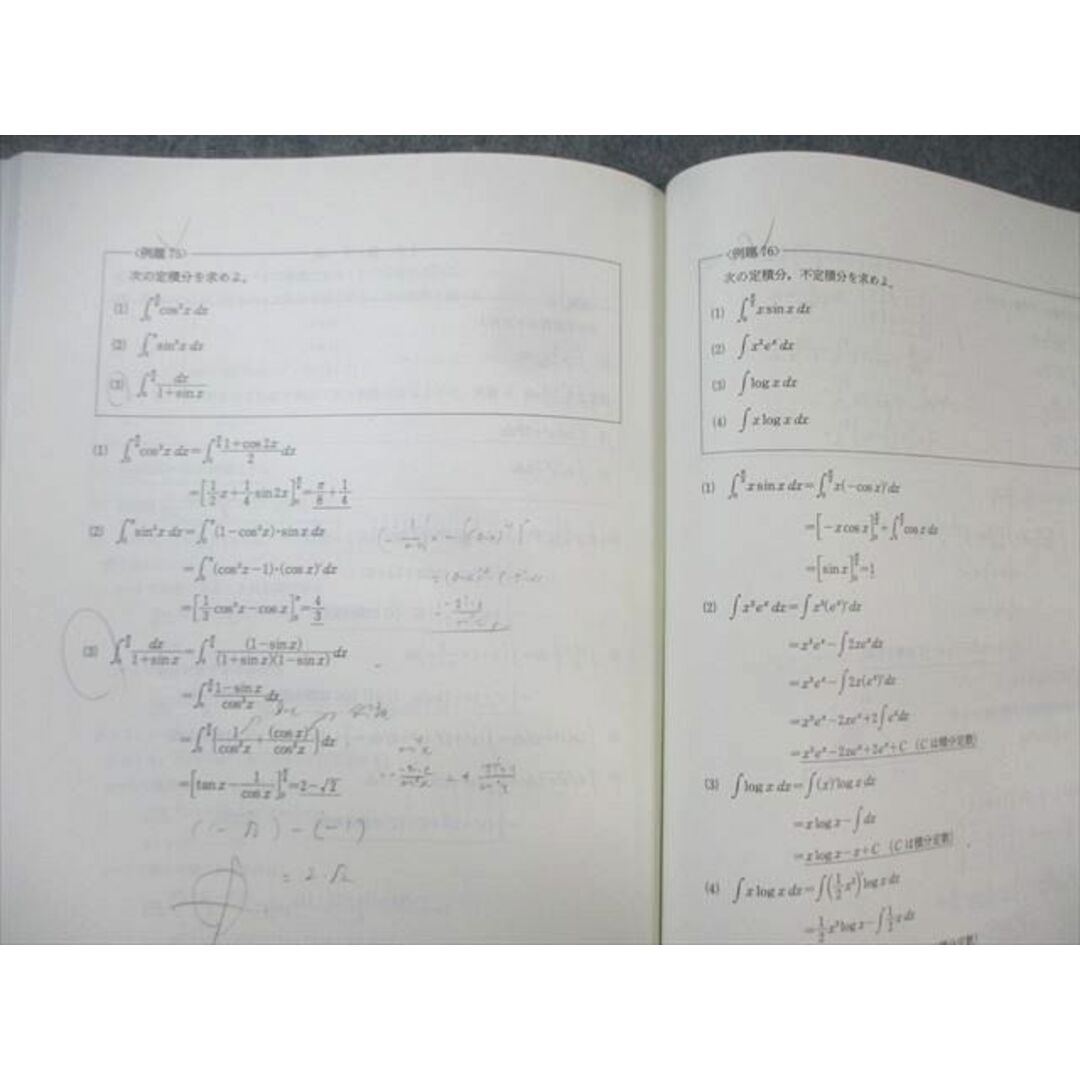 〈例題 75〉
次の定積分を求めよ。
(1) ∫₀^{π/4} cos²x dx
(2) ∫₀^π sin³x dx
(3) ∫₀^{π/4} dx/(1+sin x)
(1) ∫₀^{π/4} cos²x dx=∫₀^{π/4} (1+cos2x)/2 dx
=[1/2 x+1/4 sin2x]₀^{π/4}=π/8+1/4
(2) ∫₀^π sin³x dx=∫₀^π (1-cos²x)・sin x dx
=∫₀^π (cos²x-1)・(cos x)'dx
=[1/3 cos³x-cos x]₀^π=4/3
(3) ∫₀^{π/4} dx/(1+sin x)=∫₀^{π/4} (1-sin x)/((1+sin x)(1-sin x)) dx
=∫₀^{π/4} (1-sin x)/cos²x dx
=∫₀^{π/4} {1/cos²x+(cos x)'/cos²x}dx
=[tan x-1/cos x]₀^{π/4}=2-√2
(1-√2)-(-1)
=2-√2
〈例題 76〉
次の定積分，不定積分を求めよ。
(1) ∫₀^{π/2} x sin x dx
(2) ∫x²eˣ dx
(3) ∫log x dx
(4) ∫x log x dx
(1) ∫₀^{π/2} x sin x dx=∫₀^{π/2} x(-cos x)'dx
=[-x cos x]₀^{π/2}+∫₀^{π/2} cos x dx
=[sin x]₀^{π/2}=1
(2) ∫x²eˣ dx=∫x²(eˣ)'dx
=x²eˣ-∫2xeˣdx
=x²eˣ-∫2x(eˣ)'dx
=x²eˣ-2xeˣ+2∫eˣdx
=x²eˣ-2xeˣ+2eˣ+C (Cは積分定数)
(3) ∫log x dx=∫(x)'log x dx
=x log x-∫dx
=x log x-x+C (Cは積分定数)
(4) ∫x log x dx=∫(1/2 x²)'log x dx
=1/2 x² log x-∫1/2 x dx